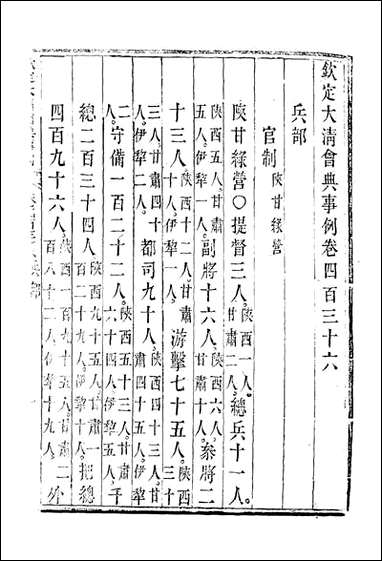 欽定大淸會典事例卷四百三十六
兵部
官制陝甘綠營
陝甘綠營○提督三人。陝西一人。甘肅二人。總兵十一人。
陝西五人。甘肅五人。伊犂一人。副將十六人。陝西六人。甘肅十人。參將二
十三人。陝西十二人。甘肅十人。伊犂一人。游擊七十五人。陝西三十
三人。甘肅四十人。伊犂二人。都司九十人。陝西四十三人。甘肅四十五人。伊犂
二人。守備一百二十二人。陝西五十三人。甘肅六十四人。伊犂五人。千
總二百三十四人。陝西九十五人。甘肅一百二十九人。伊犂十人。把總
四百九十六人。陝西一百九十五人。甘肅二百八十二人。伊犂十九人。外